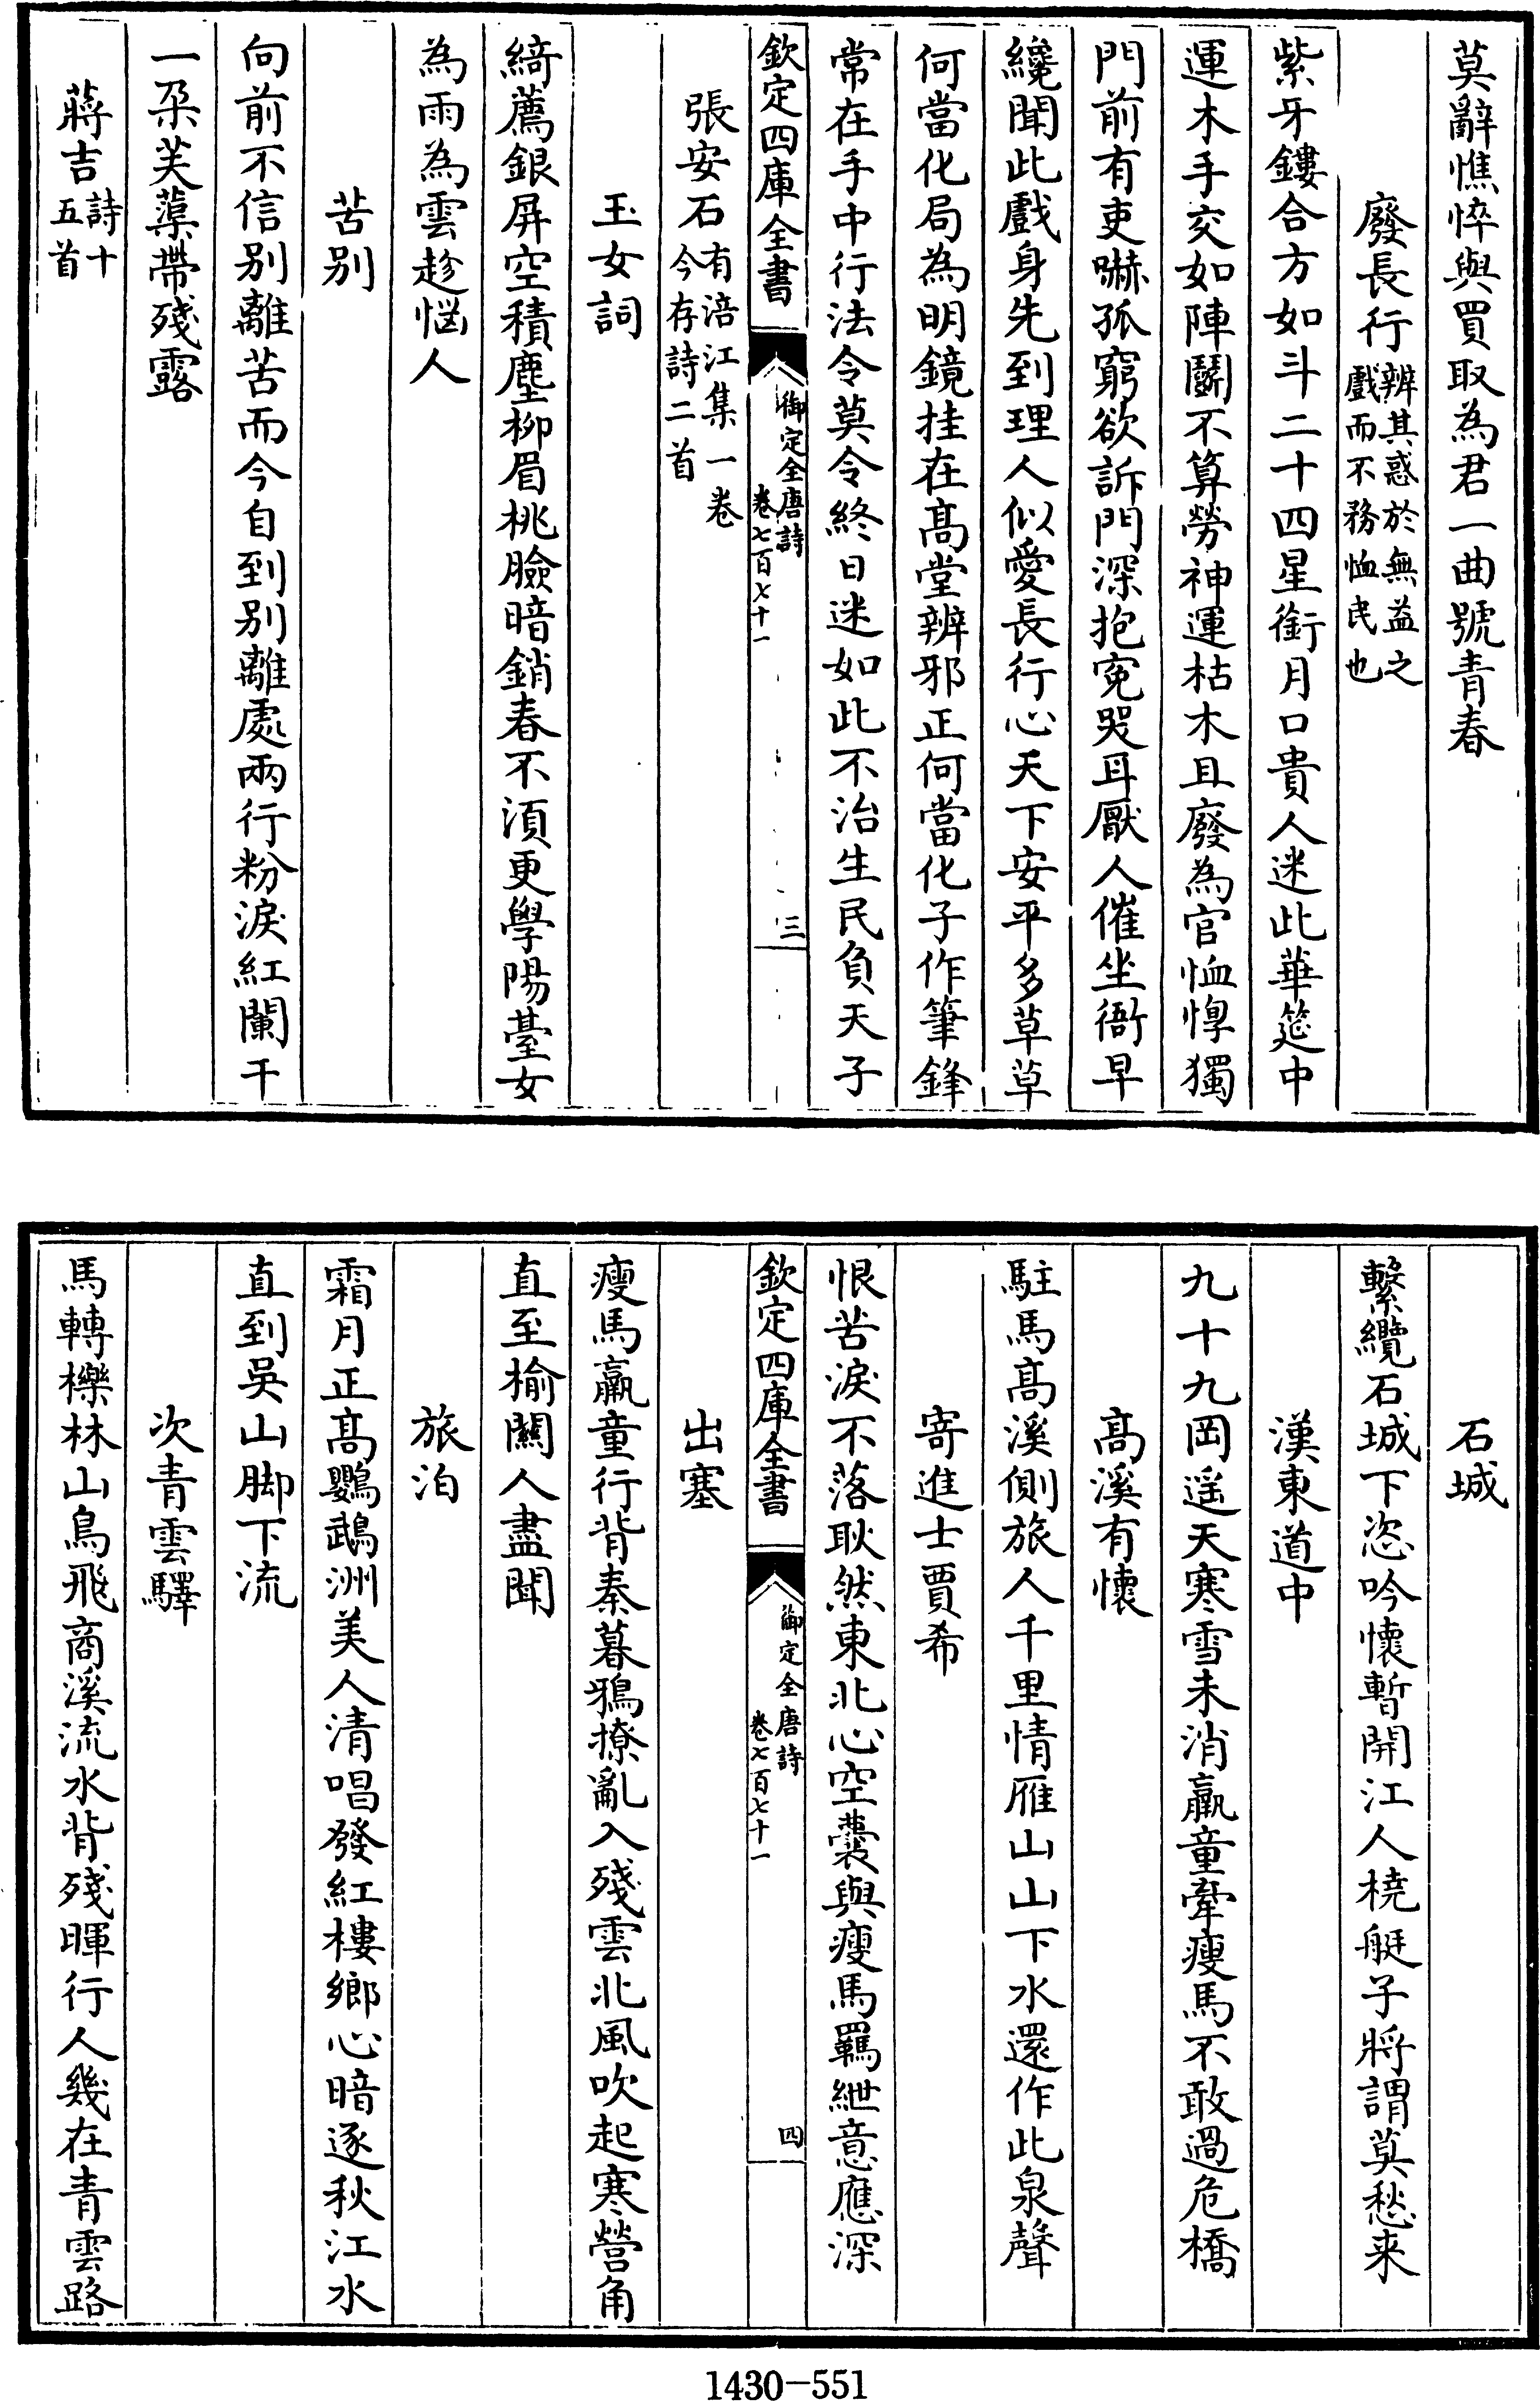 莫辭憔悴與買取為君一曲號青春
廢長行辨其惑於無益之戲而不務恤民也
紫牙鏤合方如斗二十四星銜月口貴人迷此華筵中
運木手交如陣鬬不算勞神運枯木且廢為官恤惸獨
門前有吏嚇孤窮欲訴門深抱寃哭耳厭人催坐衙早
纔聞此戲身先到理人似愛長行心天下安平多草草
何當化局為明鏡挂在髙堂辨邪正何當化子作筆鋒
常在手中行法令莫令終日迷如此不治生民負天子
欽定四庫全書 御定全唐詩卷七百七十一 三
張安石有涪江集一卷今存詩二首
玉女詞
綺薦銀屏空積塵柳眉桃臉暗銷春不湏更學陽臺女
為雨為雲趁惱人
苦别
向前不信别離苦而今自到别離處兩行粉淚紅闌干
一朶芙蕖帶殘露
蔣吉詩十五首
石城
繫纜石城下恣吟懷暫開江人橈艇子將謂莫愁来
漢東道中
九十九岡遥天寒雪未消羸童牽瘦馬不敢過危橋
髙溪有懷
駐馬髙溪側旅人千里情雁山山下水還作此泉聲
寄進士賈希
恨苦淚不落耿然東北心空囊與瘦馬羈絏意應深
欽定四庫全書 御定全唐詩卷七百七十一 四
出塞
瘦馬羸童行背秦暮鴉撩亂入殘雲北風吹起寒營角
直至榆關人盡聞
旅泊
霜月正髙鸚鵡洲美人清唱發紅樓鄉心暗逐秋江水
直到吳山脚下流
次青雲驛
馬轉櫟林山鳥飛商溪流水背殘暉行人幾在青雲路
1430-551